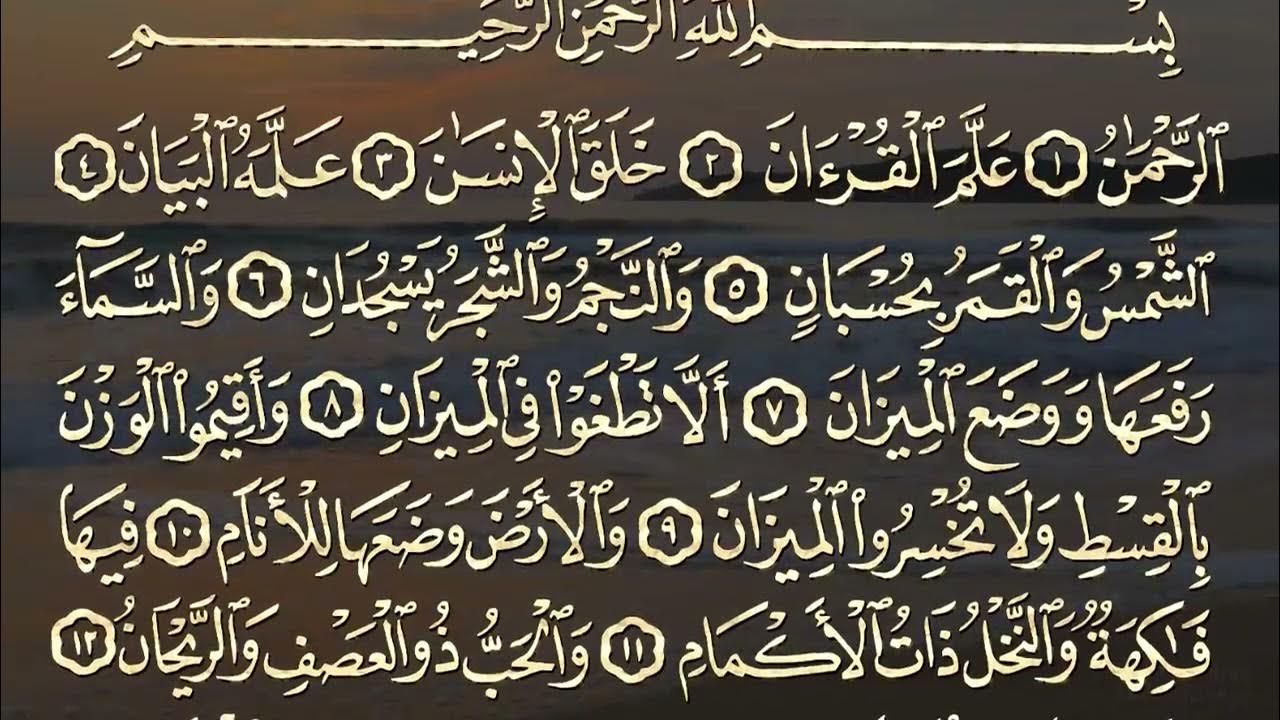 بِسْمِ اللَّهِ الرَّحْمَٰنِ الرَّحِيمِ
ٱلرَّحْمَٰنُ ١ عَلَّمَ ٱلْقُرْءَانَ ٢ خَلَقَ ٱلْإِنسَٰنَ ٣ عَلَّمَهُ ٱلْبَيَانَ ٤
ٱلشَّمْسُ وَٱلْقَمَرُ بِحُسْبَانٍ ٥ وَٱلنَّجْمُ وَٱلشَّجَرُ يَسْجُدَانِ ٦ وَٱلسَّمَآءَ
رَفَعَهَا وَوَضَعَ ٱلْمِيزَانَ ٧ أَلَّا تَطْغَوْا۟ فِى ٱلْمِيزَانِ ٨ وَأَقِيمُوا۟ ٱلْوَزْنَ
بِٱلْقِسْطِ وَلَا تُخْسِرُوا۟ ٱلْمِيزَانَ ٩ وَٱلْأَرْضَ وَضَعَهَا لِلْأَنَامِ ١٠ فِيهَا
فَٰكِهَةٌ وَٱلنَّخْلُ ذَاتُ ٱلْأَكْمَامِ ١١ وَٱلْحَبُّ ذُو ٱلْعَصْفِ وَٱلرَّيْحَانُ ١٢